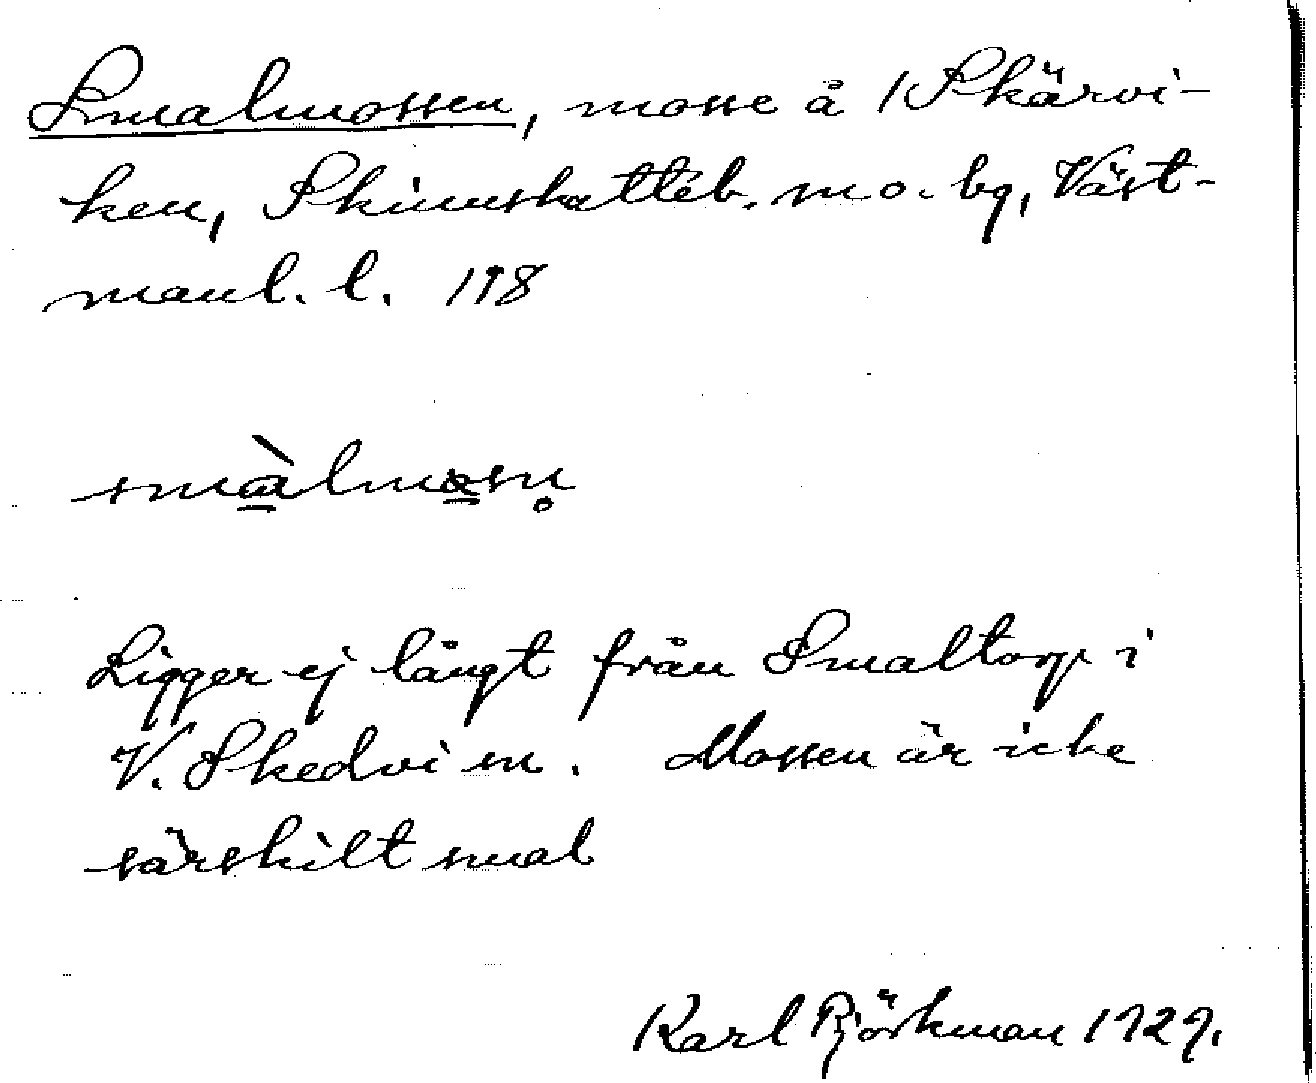 Smalmossen, mosse å /Skärvi-
ken, Skinnskatteb. m o. bg, Väst-
manl. l. 198
smàlmosn̥
Ligger ej långt från Smaltorp i
V. Skedvi sn. Mossen är icke
särskilt smal
Karl Björkman 1929.